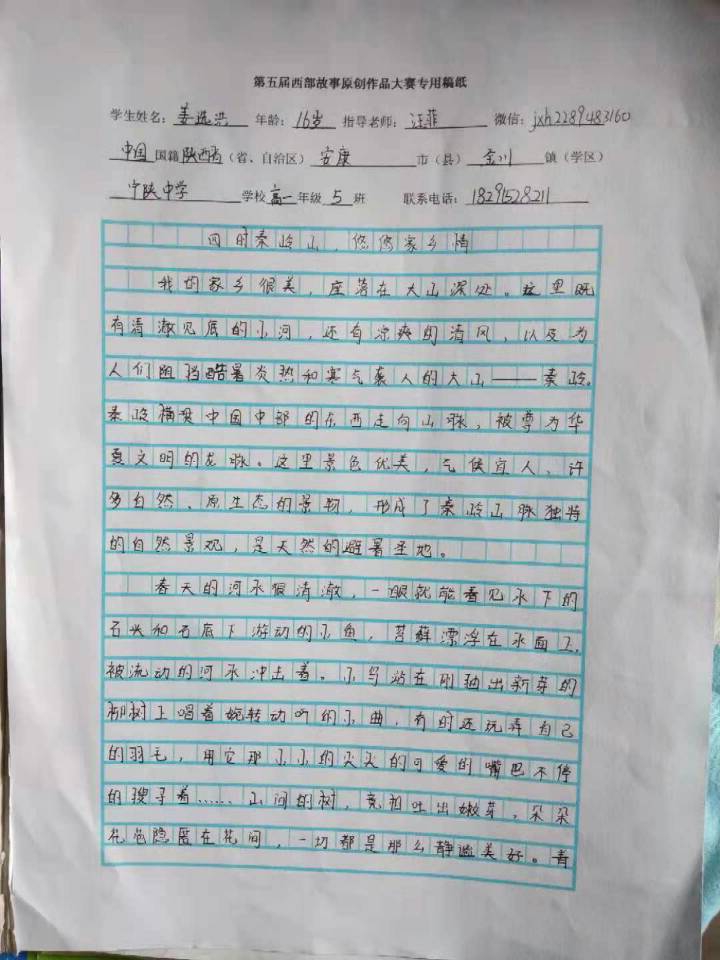 第五届西部故事原创作品大赛专用稿纸
学生姓名：姜选洪 年龄：16岁 指导老师：汪菲 微信：jxh2289483160
中国国籍陕西省（省、自治区）安康市（县）金川镇（学区）
宁陕中学学校高一年级5班 联系电话：18291528211
四时秦岭山，悠悠家乡情
我的家乡很美，座落在大山深处。这里既
有清澈见底的小河，还有凉爽的清风，以及为
人们阻挡酷暑炎热和寒气袭人的大山——秦岭。
秦岭横贯中国中部的东西走向山脉，被尊为华
夏文明的龙脉。这里景色优美，气候宜人、许
多自然、原生态的景物，形成了秦岭山脉独特
的自然景观，是天然的避暑圣地。
春天的河水很清澈，一眼就能看见水下的
石头和石底下游动的小鱼，苔藓漂浮在水面上，
被流动的河水冲击着。小鸟站在刚抽出新芽的
柳树上唱着婉转动听的小曲，有时还玩弄自己
的羽毛，用它那小小的尖尖的可爱的嘴巴不停
的搜寻着……山间的树，竞相吐出嫩芽，朵朵
花苞隐匿在花间，一切都是那么静谧美好。青